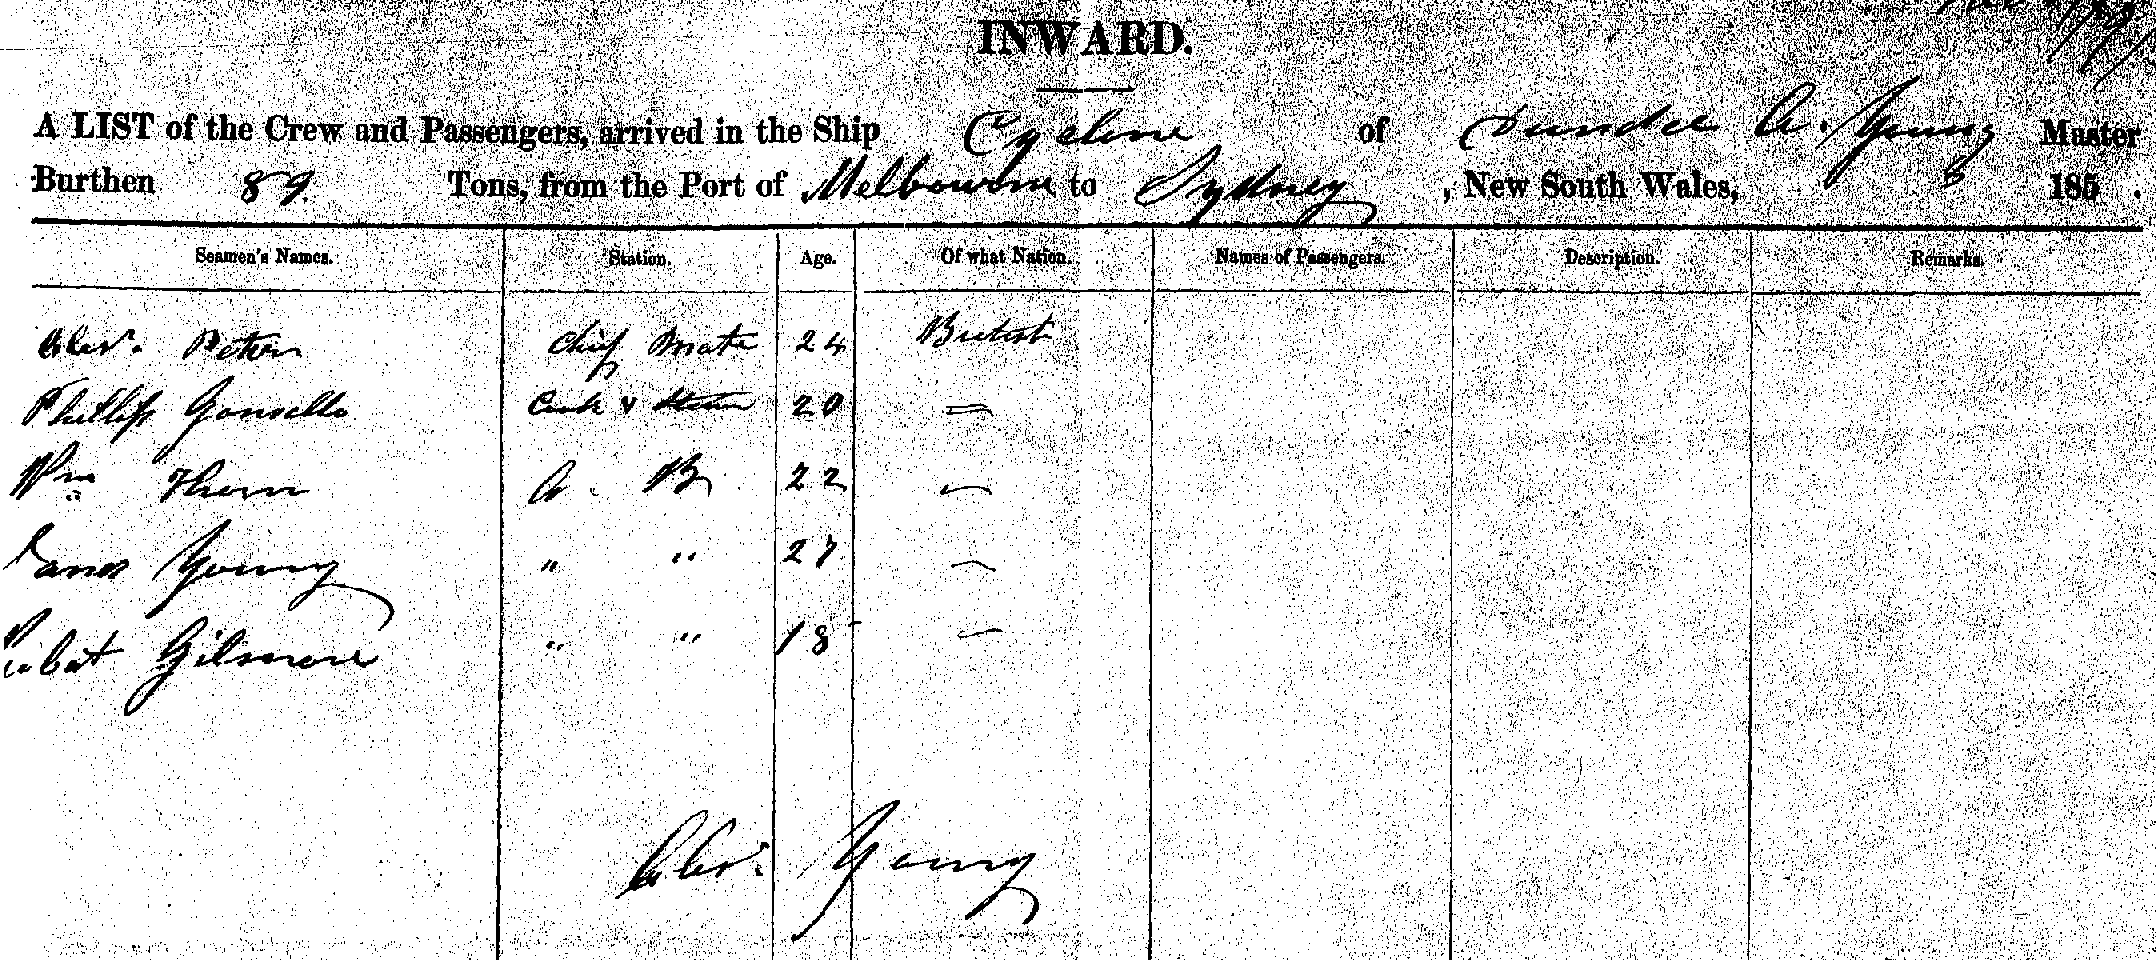 INWARD.
A LIST of the Crew and Passengers, arrived in the Ship Cyclone of Dundee A. Young Master
Burthen 89. Tons, from the Port of Melbourne to Sydney, New South Wales, 185 .
Seamen's Names. Station. Age. Of what Nation. Names of Passengers. Description. Remarks.
Alexr. Peters Chief Mate 24 British
Phillip Gonsello Cook & 20 =
Wm Thorn A. B 22 —
James Young " " 27 —
Robert Gilmore " " 18 —
Alexr. Young